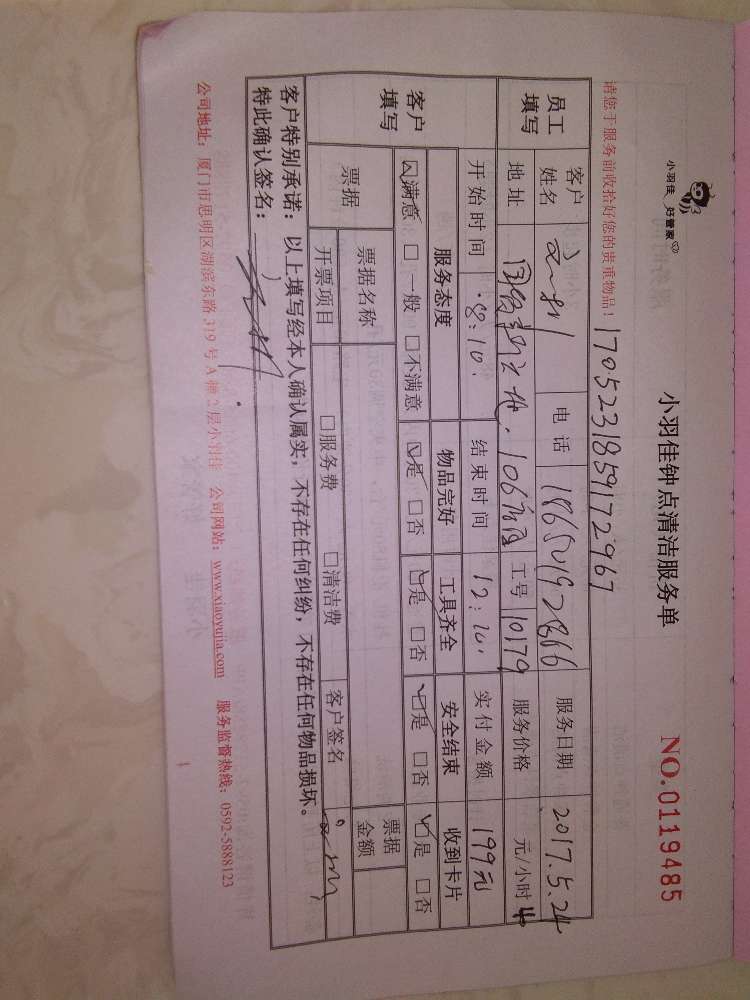 小羽佳 好管家
小羽佳钟点清洁服务单
NO.0119485
请您于服务前收拾好您的贵重物品!
1705231859172967
员工填写
客户姓名
电话 18650192866
服务日期 2017.5.24
地址
106
工号 10179
服务价格 元/小时 40
开始时间 8:10.
结束时间 12:10.
实付金额 199元
客户填写
服务态度 物品完好 工具齐全 安全结束 收到卡片
☑满意 □一般 □不满意 ☑是 □否 ☑是 □否 ☑是 □否 ☑是 □否
票据
票据名称
票据金额
开票项目 □服务费 □清洁费 客户签名
客户特别承诺:以上填写经本人确认属实,不存在任何纠纷,不存在任何物品损坏。
特此确认签名:
公司地址:厦门市思明区湖滨东路319号A栋2层小羽佳 公司网站:www.xiaoyujia.com 服务监督热线:0592-5888123
1